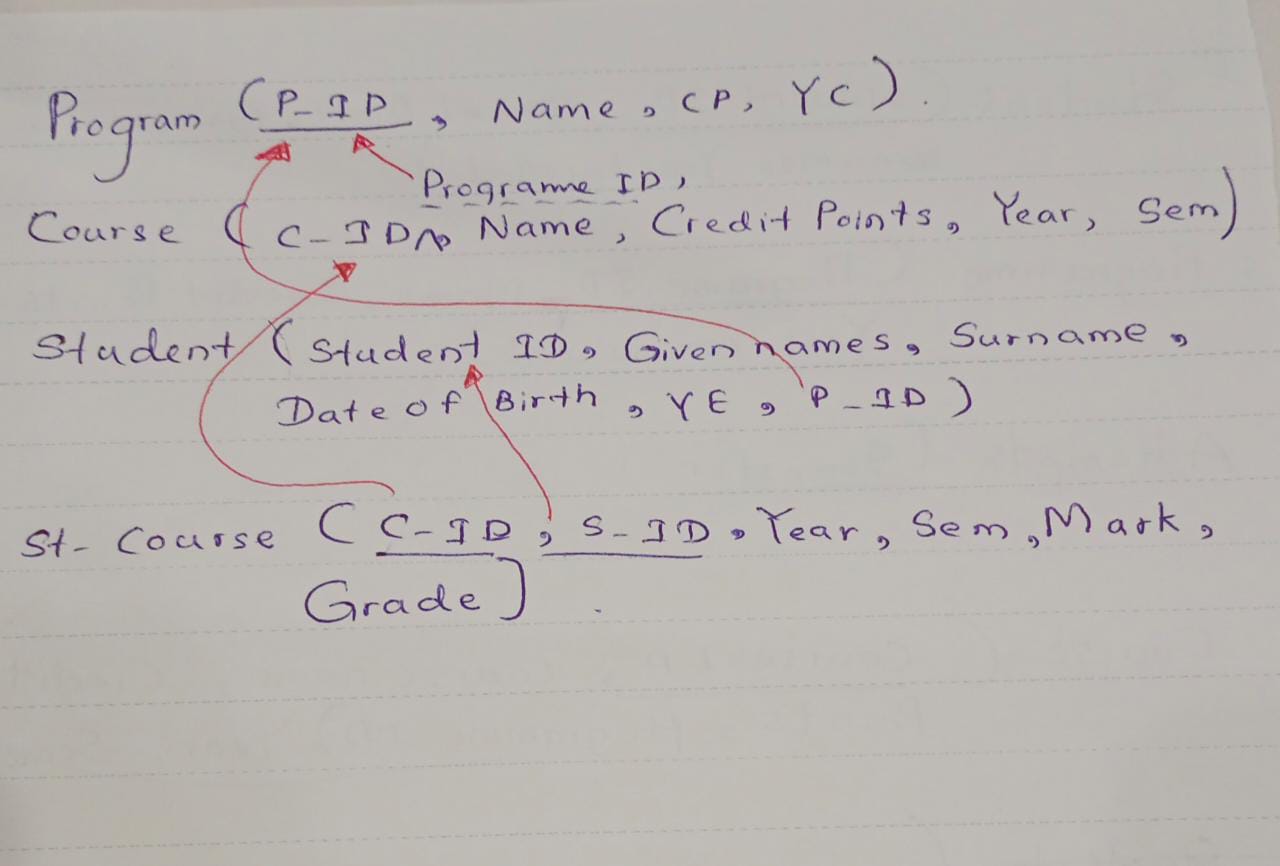 Program (P_ID, Name, CP, YC).
Programme ID,
Course (C-ID, Name, Credit Points, Year, Sem)
Student (Student ID, Given names, Surname,
Date of Birth, YE, P_ID)
St- Course (C-ID, S-ID, Year, Sem, Mark,
Grade)